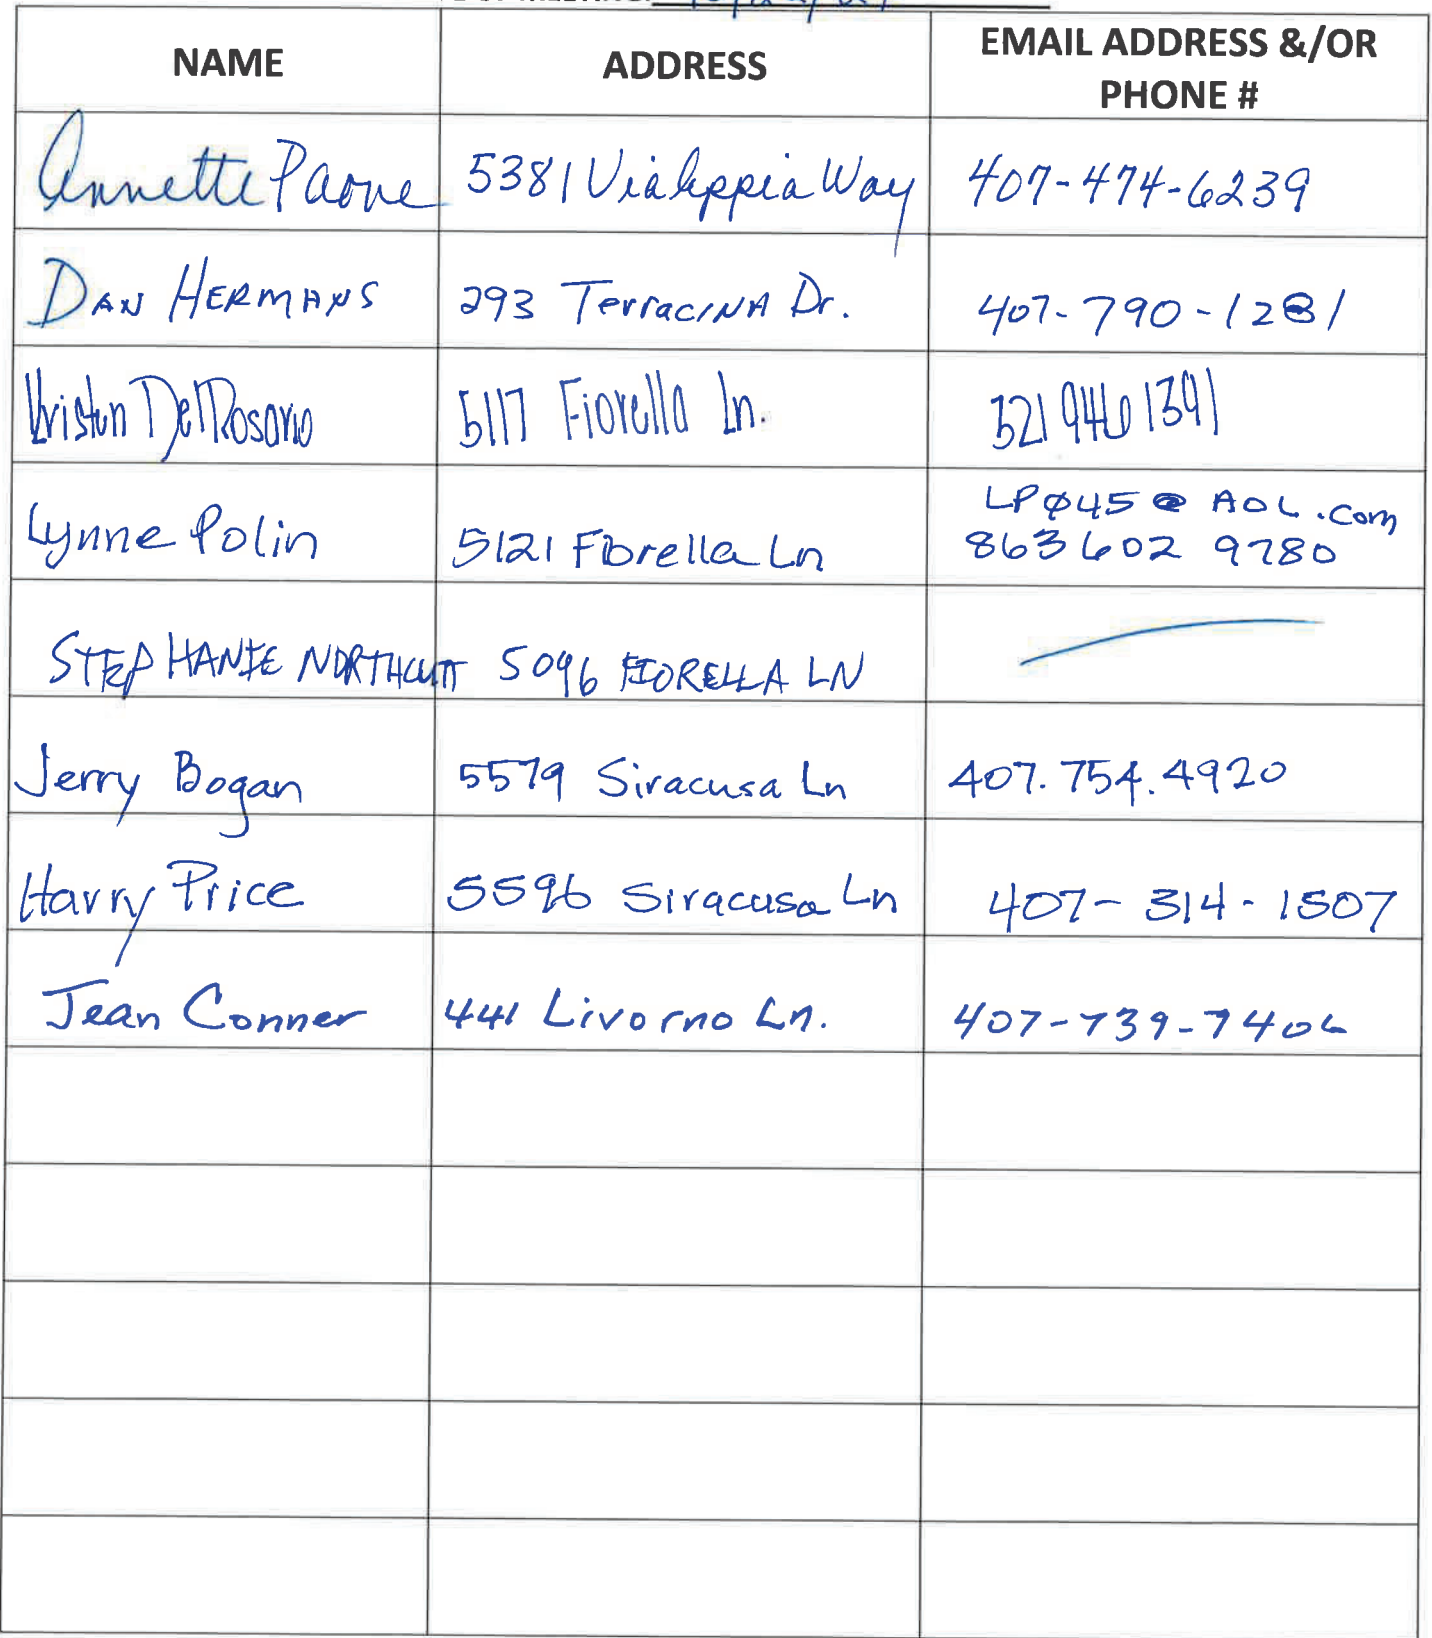 MEETING:
NAME ADDRESS EMAIL ADDRESS &/OR
PHONE #
Annette Paone 5381 Via Appia Way 407-474-6239
DAN HERMANS 293 TerraciNA Dr. 407-790-1281
Kristen DelRosario 5117 Fiorella Ln. 321 946 1391
Lynne Polin 5121 Fiorella Ln LPØ45@AOL.com
863 602 9780
STEPHANIE NORTHCUTT 5096 FIORELLA LN
Jerry Bogan 5579 Siracusa Ln 407.754.4920
Harry Price 5596 Siracusa Ln 407-314-1507
Jean Conner 441 Livorno Ln. 407-739-7406